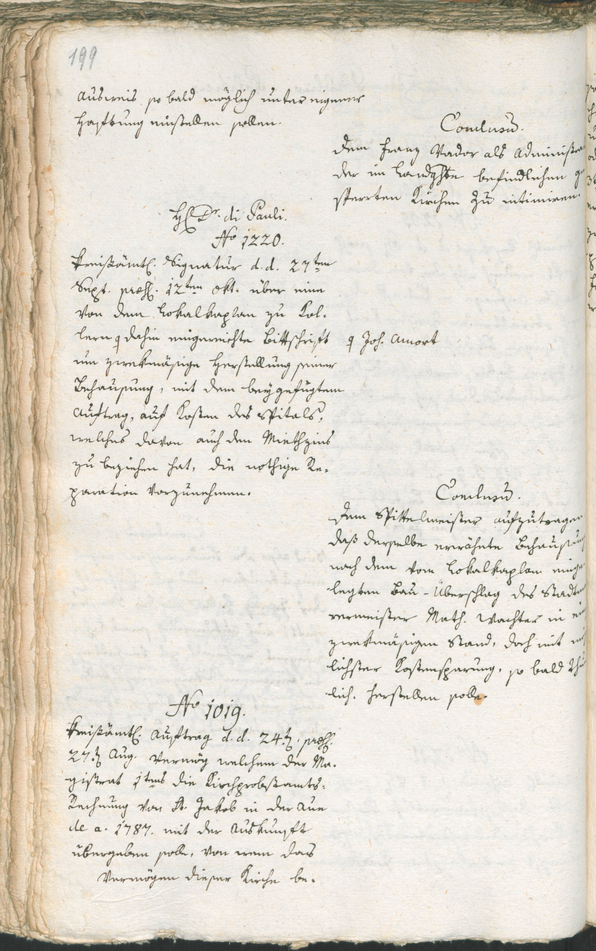 199
Ausweis so bald möglich unter eigener
Haftung einstellen sollen.
Conclusum.
Dem Franz Vader als Administra
der im Landghte befindlichen ge
sperrten Kirchen zu intimiren
H. v. di Pauli.
No 1220.
Kreisämtl. Signatur d. d. 27ten
Sept. præs. 12ten Okt. über eine
von dem Lokalkaplan zu Kol-
lern dahin eingereichte Bittschrift
Joh. Amort
um zwekmäsige Herstellung seiner
Behausung, mit dem beygefügtem
Auftrag, auf Kosten des Spitals,
welches davon auch den Miethzins
zu beziehen hat, die nöthige Re-
paration vorzunehmen.
Conclusum.
Dem Spittelmeister aufzutragen
daß derselbe erwähnte Behausung
nach dem vom Lokalkaplan einge
legten Bau-Überschlag des Stadtma
urermeister Math. Wachter in ein
zwekmäsigen Stand, doch mit mög
lichster Kostensparung, so bald thun
lich. herstellen solle.
No 1019.
Kreisämtl. Auftrag d. d. 24ten, præs.
27ten Aug. vermög welchem der Ma-
gistrat 1tens die Kirchprobstamts-
Rechnung von St. Jakob in der Aue
de a. 1787. mit der Auskunft
übergeben solle, von wem das
Vermögen dieser Kirche be-